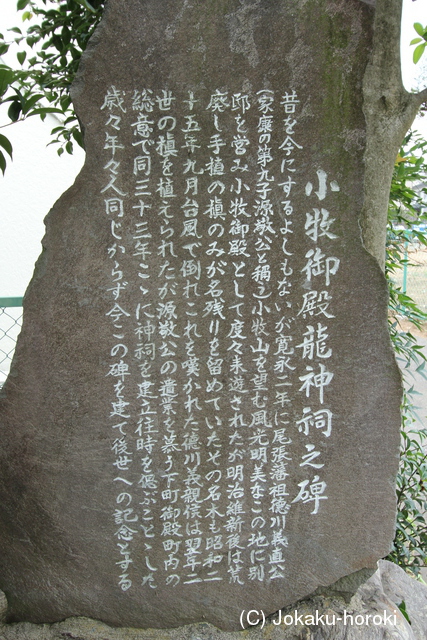 小牧御殿龍神祠之碑
昔を今にするよしもないが寛永二年に尾張藩祖徳川義直公
(家康の第九子源敬公と稱え)小牧山を望む風光明美なこの地に別
邸を営み小牧御殿として度々来遊されたが明治維新後は荒
廃し手植の槙のみが名残りを留めていたその名木も昭和二
十五年九月台風で倒れこれを嘆かれた徳川義親侯は翌年二
世の槙を植えられたが源敬公の遺業を慕う下町御殿町内の
総意で同三十三年こゝに神祠を建立往時を偲ぶことゝした
歳々年々人同じからず今この碑を建て後世への記念とする
(C) Jokaku-horoki